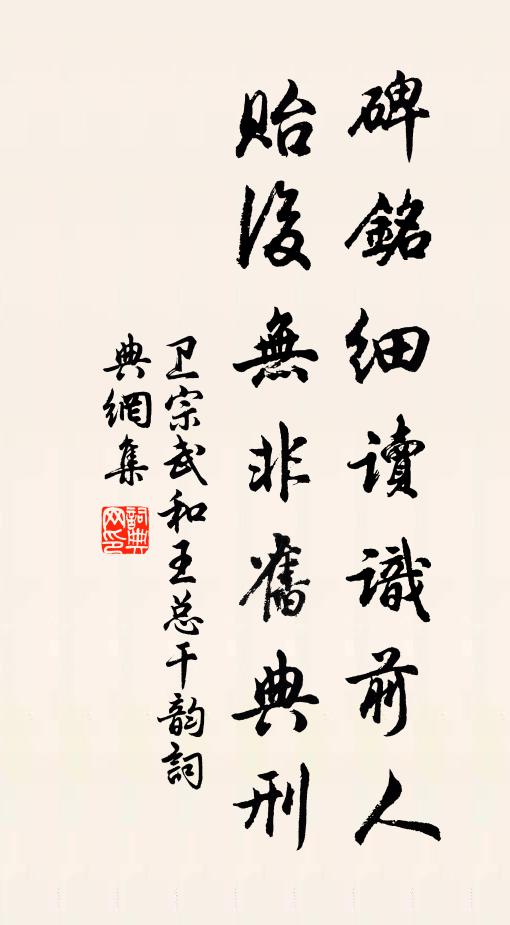 碑銘細讀識前人
貽後無非舊典刑
卫宗武和王总干韵詞
典網集
詞典网印